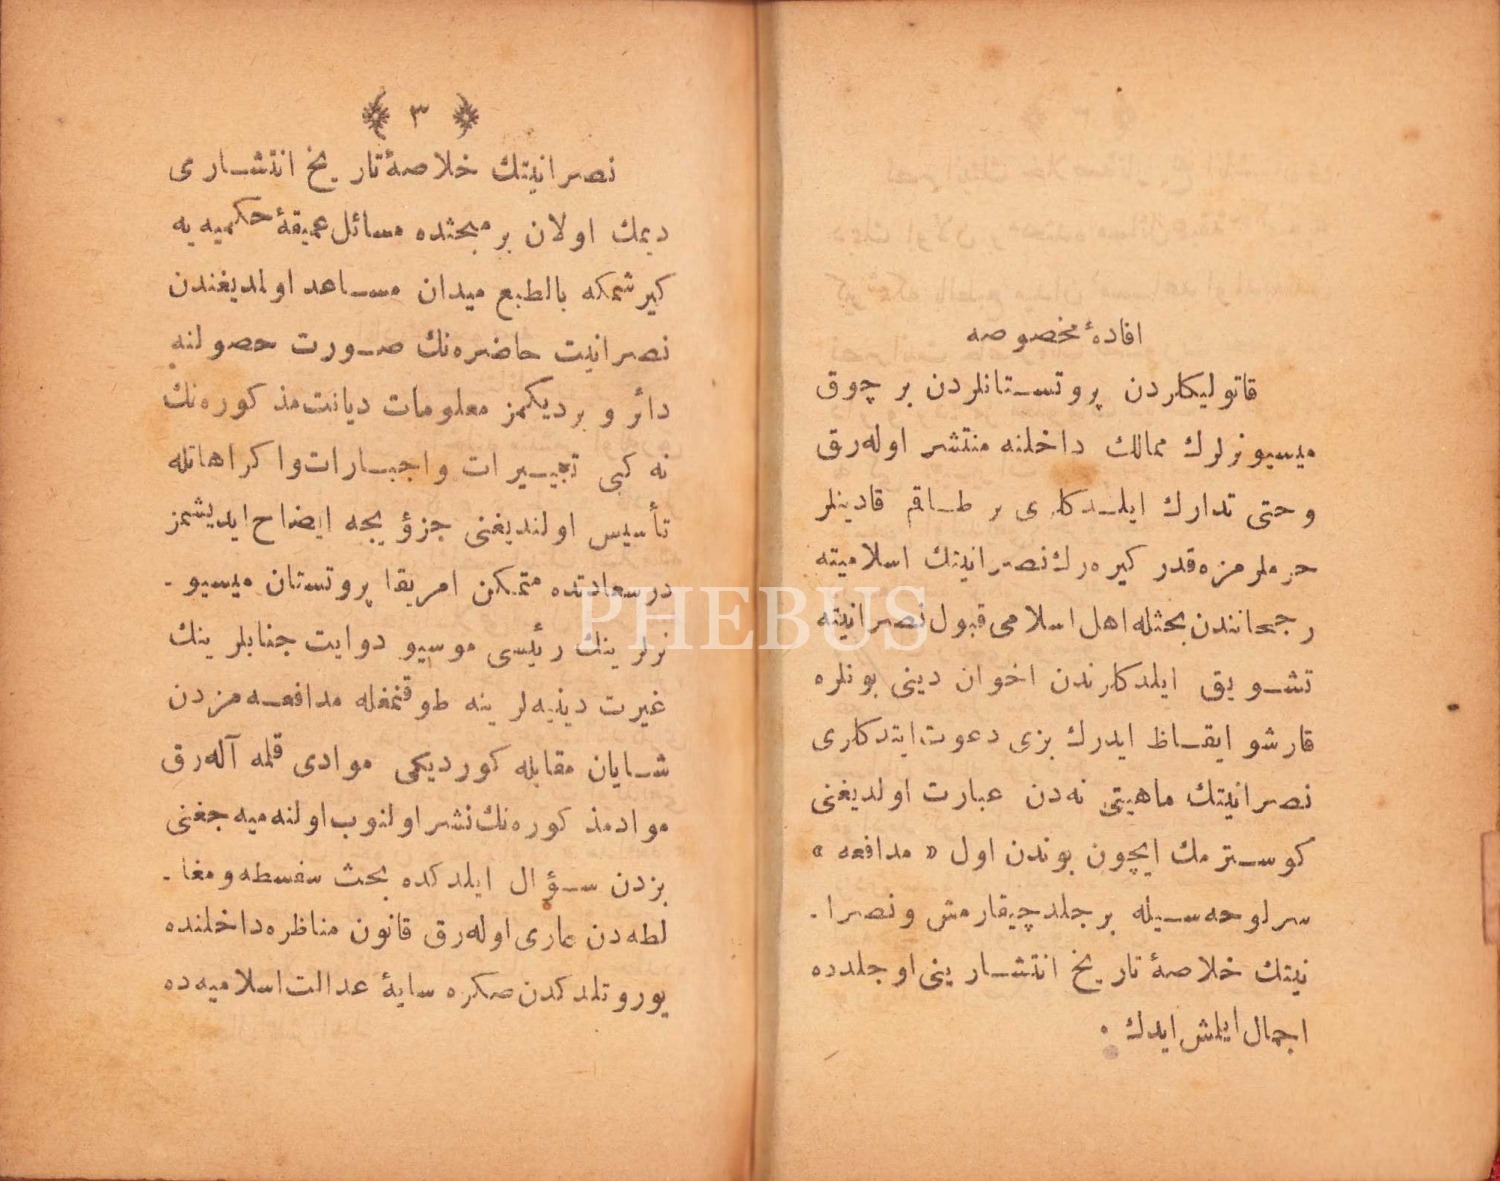 افادهٔ مخصوصه
قاتولیکلردن پروتستانلردن بر چوق
میسیونرلرك ممالك داخلنه منتشر اوله‌رق
و حتی تدارك ایلدکلری بر طاقم قادینلر
حرملرمزه قدر کیره‌رك نصرانیتك اسلامیته
رجحانندن بحثله اهل اسلامی قبول نصرانیته
تشویق ایلدکلرندن اخوان دینی بونلره
قارشو ایقاظ ایدرك بزی دعوت ایتدکلری
نصرانیتك ماهیتی نه‌دن عبارت اولدیغنی
کوسترمك ایچون بوندن اول « مدافعه »
سرلوحه‌سیله بر جلد چیقارمش و نصرا -
نیتك خلاصهٔ تاریخ انتشارینی او جلدده
اجمال ایلش ایدك .
٣
نصرانیتك خلاصهٔ تاریخ انتشاری
دیمك اولان بر مبحثده مسائل عمیقهٔ حکمیه یه
کیرشمکه بالطبع میدان مساهد اولمدیغندن
نصرانیت حاضره‌نك صورت حصولنه
دائر ویردیکمز معلومات دیانت مذکوره‌نك
نه کبی تجبیرات واجبارات واکراهاتله
تأسیس اولندیغنی جزؤیجه ایضاح ایدیشمز
درسعادتده متمکن امریقا پروتستان میسیو -
نرلرینك رئیسی موسیو دوایت جنابلرینك
غیرت دینیه‌لرینه طوقنمغله مدافعه‌مزدن
شایان مقابله کوردیکی موادی قلمه آله‌رق
مواد مذکوره‌نك نشر اولنوب اولنه‌میه‌جغنی
بزدن سؤال ایلدکده بحث سفسطه و مغا -
لطه‌دن عاری اوله‌رق قانون مناظره داخلنده
یوروتلدکدن صکره سایهٔ عدالت اسلامیه‌ده
PHEBUS